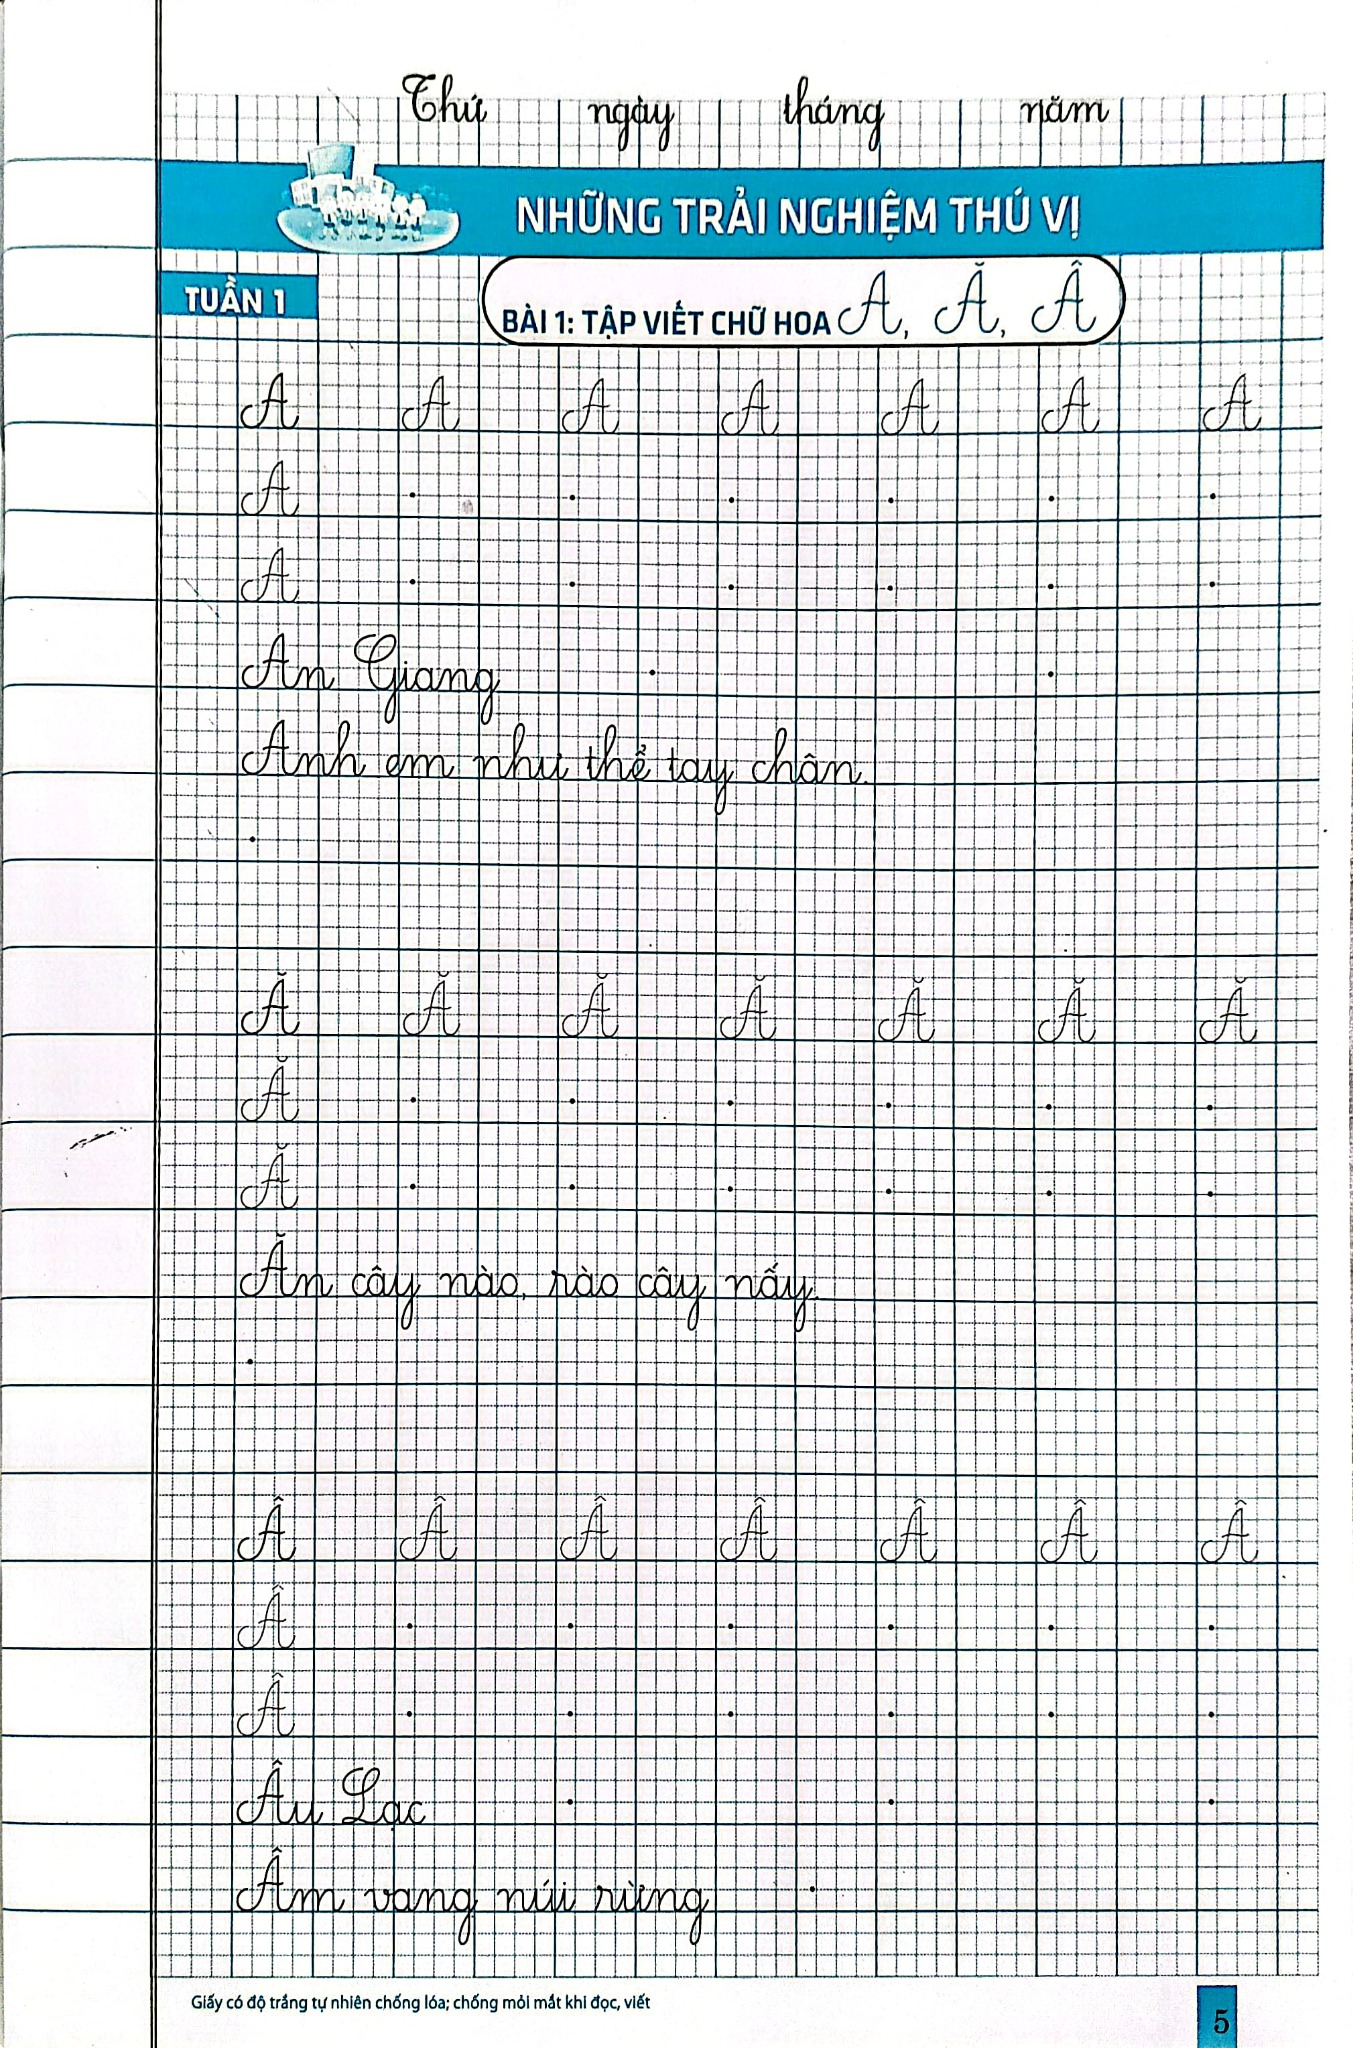 Thứ ngày tháng năm
NHỮNG TRẢI NGHIỆM THÚ VỊ
TUẦN 1
BÀI 1: TẬP VIẾT CHỮ HOA A, Ă, Â
A A A A A A A
A
A
An Giang
Anh em như thể tay chân.
Ă Ă Ă Ă Ă Ă Ă
Ă
Ă
Ăn cây nào, rào cây nấy.
Â Â Â Â Â Â Â
Â
Â
Âu Lạc
Âm vang núi rừng
Giấy có độ trắng tự nhiên chống lóa; chống mỏi mắt khi đọc, viết
5